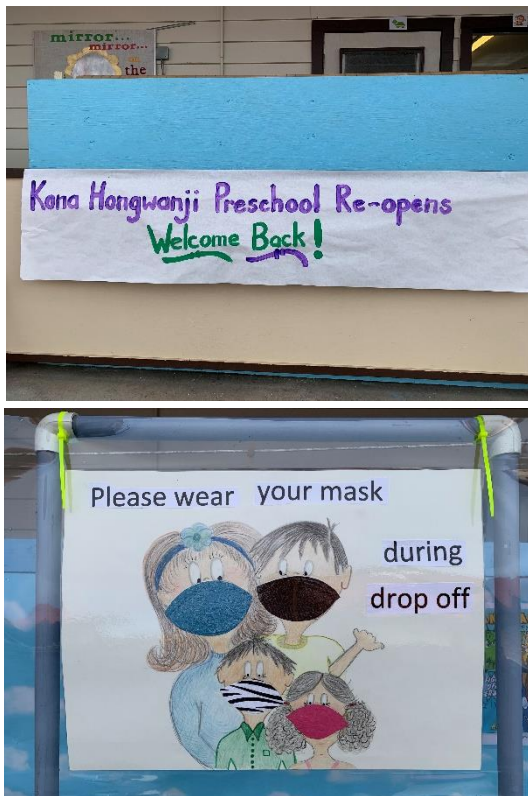 mirror...
mirror...
on
the
Kona Hongwanji Preschool Re-opens
Welcome Back!
Please wear your mask
during
drop off